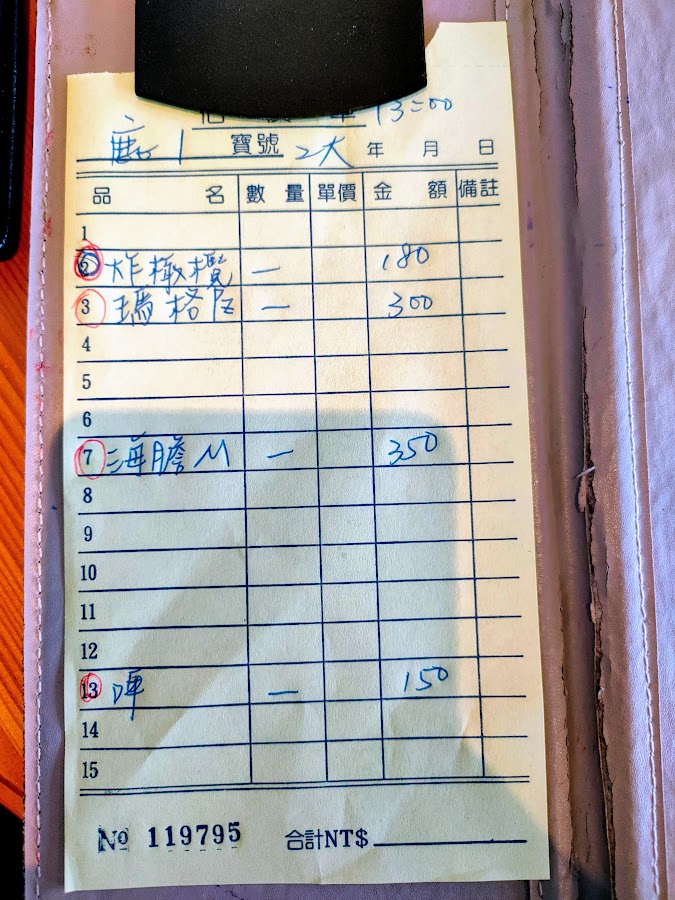 13:00
1 寶號 2大 年 月 日
品 名 數 量 單價 金 額 備註
1
2 炸橄欖 一 180
3 瑪格 一 300
4
5
6
7 海膽 M 一 350
8
9
10
11
12
13 啤 一 150
14
15
No 119795 合計NT$